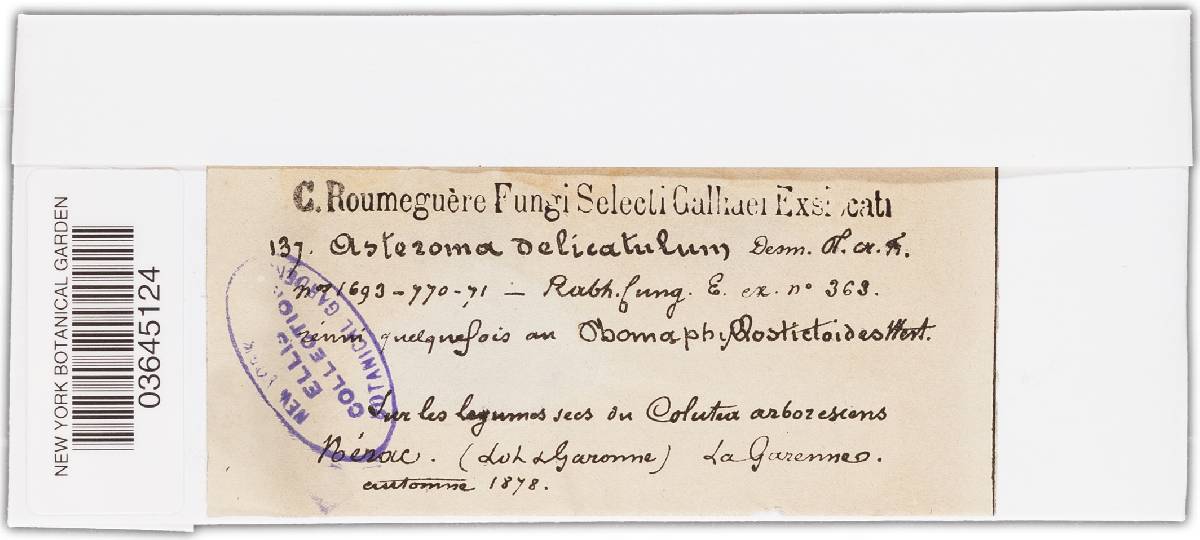 NEW YORK BOTANICAL GARDEN
03645124
C. Roumeguère Fungi Selecti Galliaei Exsiccati
137. Asteroma delicatulum Desm. Pl. cr. Fr.
nos 1693-770-71 — Rabh. fung. E. ex. no 363.
réuni quelquefois au Phoma phyllostictoides West.
Sur les légumes secs du Colutea arborescens
Nérac. (Lot & Garonne) La Garenne.
automne 1878.
NEW YORK
ELLIS
COLLECTION
BOTANICAL GARDEN